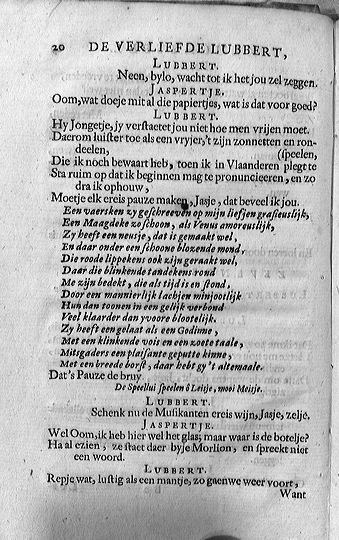 20 DE VERLIEFDE LUBBERT,
LUBBERT.
Neen, bylo, wacht tot ik het jou zel zeggen.
JASPERTJE.
Oom, wat doeje mit al die papiertjes, wat is dat voor goed?
LUBBERT.
Hy Jongetje, jy verstaetet jou niet hoe men vrijen moet.
Daerom luister toe als een vryjer, 't zijn zonnetten en ron-
deelen, (speelen,
Die ik noch bewaart heb, toen ik in Vlaanderen plegt te
Sta ruim op dat ik beginnen mag te pronuncieeren, en zo
dra ik ophouw,
Moetje elk ereis pauze maken, Jasje, dat beveel ik jou.
Een vaersken zy geschreeven op mijn liefjen grasieuslijk,
Een Maagdeke zo schoon, als Venus amoreuslijk,
Zy heeft een neusje, dat is gemaakt wel,
En daar onder een schoone blozende mond,
Die roode lippekens ook zijn geraakt wel,
Daar die blinkende tandekens rond
Me zijn bedekt, die als tijd is en stond,
Door een mannierlijk lachjen minjootlijk
Hun dan toonen in een gelijk verbond
Veel klaarder dan yvoore blootelijk.
Zy heeft een gelaat als een Godinne,
Met een klinkende vois en een zoete taale,
Mitsgaders een plaisante geputte kinne,
Met een breede borst, daar hebt gy 't altemaale.
Dat's Pauze de bruy
De Speellui speelen ô Leisje, mooi Meisje.
LUBBERT.
Schenk nu de Musikanten ereis wijn, Jasje, zelje.
JASPERTJE.
Wel Oom, ik heb hier wel het glas, maar waar is de botelje?
Ha al ezien, ze staet daer byje Morlion, en spreekt niet
een woord.
LUBBERT.
Repje wat, lustig als een mantje, zo gaenwe weer voort,
Want